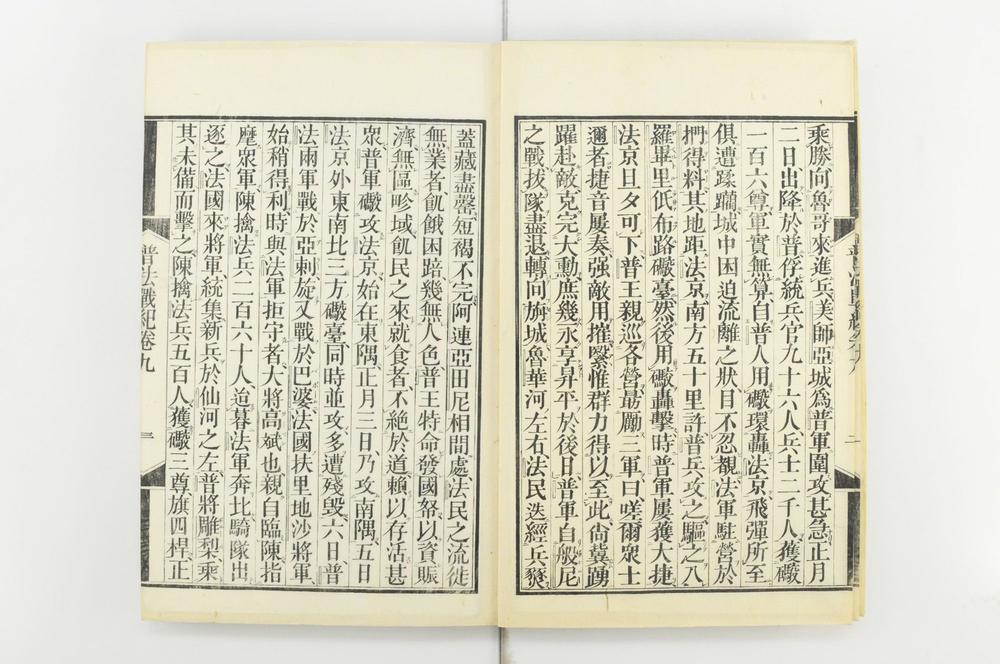 乘勝向魯哥來進兵美師亞城爲普軍圍攻甚急正月
二日出降於普俘統兵官九十六人兵士二千人獲礮
一百六尊軍實無算自普人用礮環轟法京飛彈所至
俱遭蹂躪城中困迫流離之狀目不忍覩法軍駐營於
捫得料其地距法京南方五十里許普兵攻之驅之八
羅畢里低布路礮臺然後用礮轟擊時普軍屢獲大捷
法京旦夕可下普王親巡各營勗勵三軍曰嗟爾衆士
邇者捷音屢奏强敵用摧繄惟群力得以至此尙冀踴
躍赴敵克完大勳庶幾永享昇平於後日普軍自般尼
之戰拔隊盡退轉向旃城魯華河左右法民迭經兵燹
蓋藏盡罄短褐不完阿連亞田尼相間處法民之流徙
無業者飢餓困踣幾無人色普王特命發國帑以資賑
濟無區畛域飢民之來就食者不絶於道賴以存活甚
衆普軍礮攻法京始在東隅正月三日乃攻南隅五日
法京外東南北三方礮臺同時並攻多遭殘毀六日普
法兩軍戰於亞刺旋又戰於巴婆法國扶里地沙將軍
始稍得利時與法軍拒守者大將高斌也親自臨陳指
麾衆軍陳擒法兵二百六十人迨暮法軍奔北騎隊出
逐之法國來將軍統集新兵於仙河之左普將雕梨乘
其未備而擊之陳擒法兵五百人獲礮三尊旗四桿正
普法戰紀卷九
二